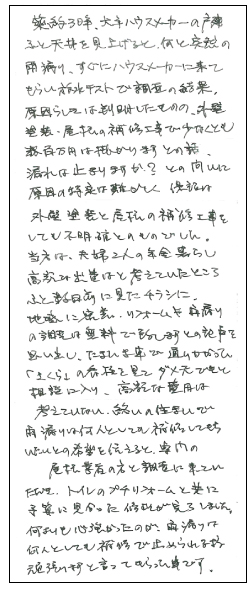 築約30年、大手ハウスメーカーの戸建
ふと天井を見上げると、何と突然の
雨漏り、すぐにハウスメーカーに来て
もらい散水テストで調査の結果、
原因らしきは判明したものの、外壁
塗装・屋根の補修工事で少なくとも
数百万円は掛かりますとの話、
漏れは止まりますか?との問いに
原因の特定は難かしく 保証は
外壁塗装と屋根の補修工事を
しても不明確とのものでした。
当方は、夫婦2人の年金暮らし
高額な出費はと考えていたところ
ふと数日前に見たチラシに、
地域に密着、リフォームや雨漏り
の調査は無料で致しますとの記事を
思い出し、たまたま車で通りがかった
「さくら」の看板を見てダメ元でもと
相談に入り、高額な費用は
考えていない、終いの住まいで
雨漏りは何んとしても補修してもら
いたいとの希望を伝えると、案内の
屋根業者の方と調査に来てい
ただき、トイレのプチリフォームと共に
予算に見合った修理が完了しました。
何よりも心強かったのが、雨漏りは
何んとしても補修で止められる様
頑張りますと言ってもらった事です。